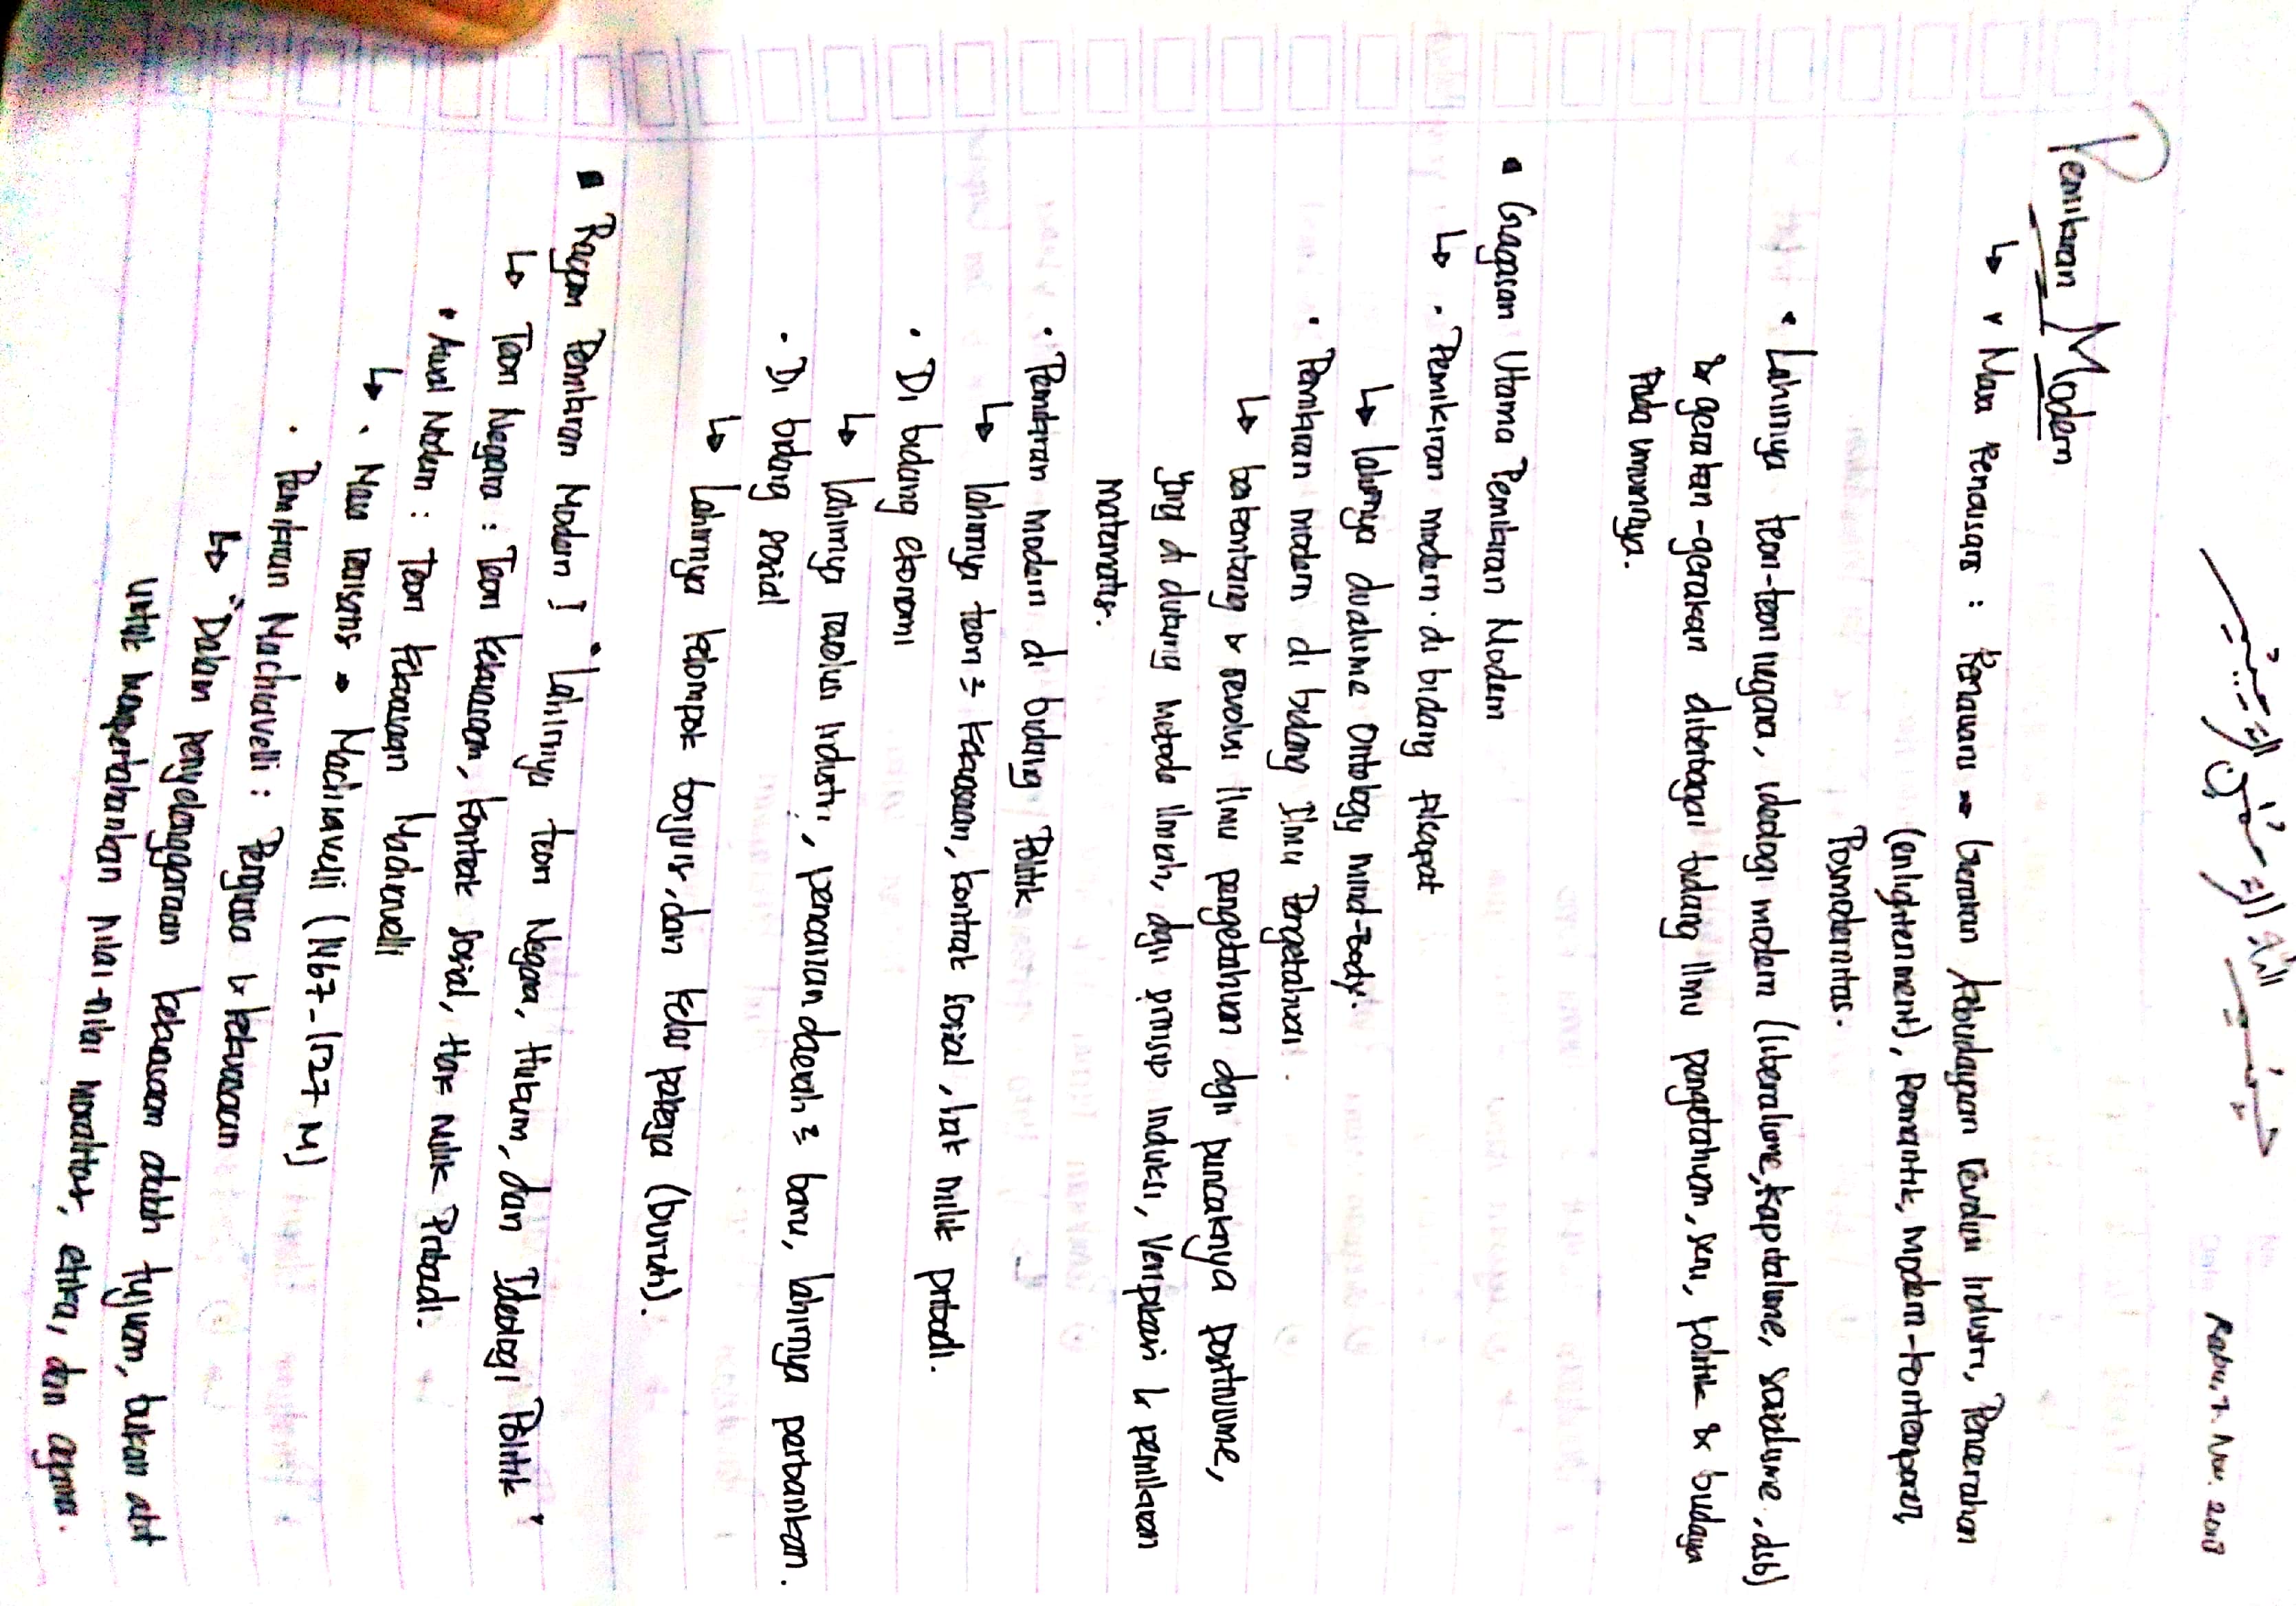 بسم الله الرحمن الرحيم
Rabu, 7. Nov. 2018
Pemikiran Modern
↳ Masa Renaisans : Renawans → Gerakan kebudayaan revolusi Industri, Pencerahan
(enlightenment), Romantik, modern-kontemporer,
Posmodernitas.
• Lahirnya teori-teori negara, ideologi modern (liberalisme, kapitalisme, sosialisme, dsb)
& gerakan-gerakan diberbagai bidang ilmu pengetahuan, seni, politik & budaya
pada umumnya.
▪ Gagasan Utama Pemikiran Modern
↳ • Pemikiran modern di bidang filsapat
↳ lahirnya dualisme Ontology mind-Body.
• Pemikiran modern di bidang Ilmu Pengetahuan.
↳ berkembang & revolusi ilmu pengetahuan dgn puncaknya positivisme,
yang di dukung metode ilmiah, dgn prinsip induksi, Veripikasi & pemikiran
matematis.
• Pemikiran modern di bidang Politik
↳ lahirnya teori² kekuasaan, kontrak sosial, hak milik pribadi.
• Di bidang ekonomi
↳ lahirnya revolusi industri, pencarian daerah² baru, lahirnya perbankan.
• Di bidang sosial
↳ Lahirnya kelompok borjuis, dan kelas pekerja (buruh).
▪ Ragam Pemikiran Modern ] "Lahirnya teori Negara, Hukum, dan Ideologi Politik"
↳ Teori Negara : Teori kekuasaan, Kontrak Sosial, Hak Milik Pribadi.
• Awal Modern : Teori kekuasaan Machiavelli
↳ • Masa Renaisans → Machiavelli (1467-1527 M)
• Pemikiran Machiavelli : Penguasa & kekuasaan
↳ "Dalam penyelenggaraan kekuasaan adalah tujuan, bukan alat
Untuk mempertahankan nilai-nilai moralitas, etika, dan agama.